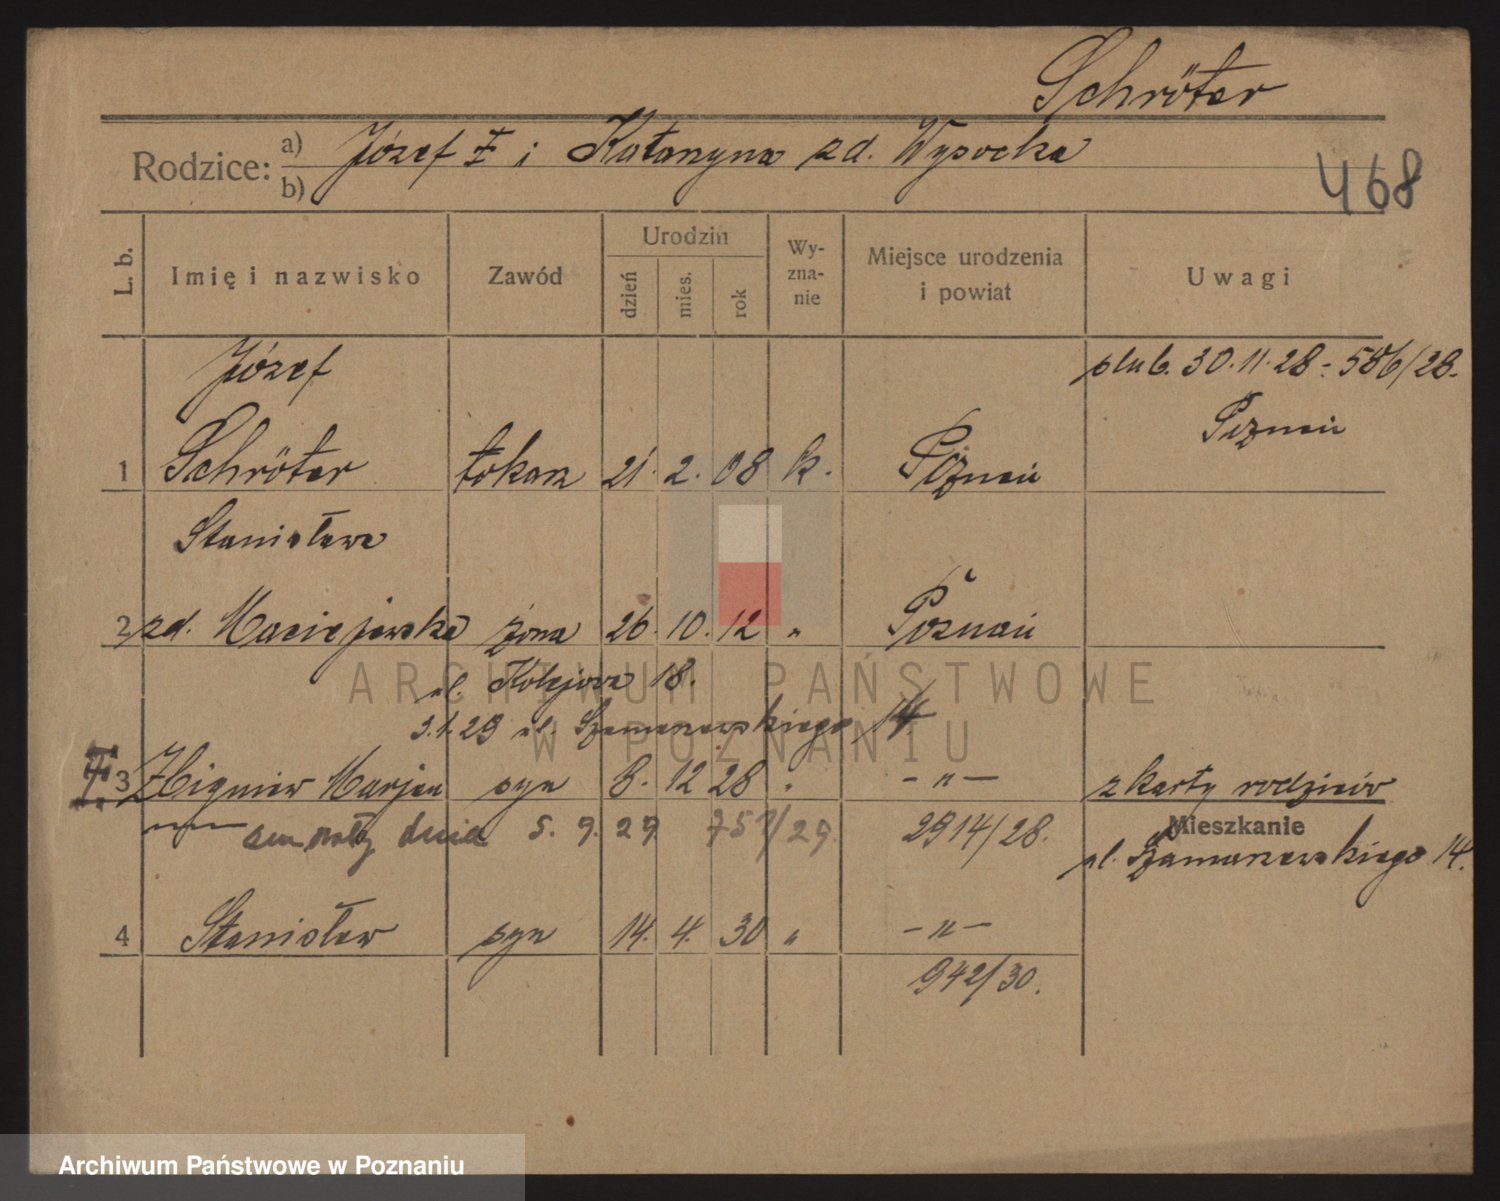 Schröter
Rodzice: a) Józef i Katarzyna zd. Wysocka
b)
468
L. b. Imię i nazwisko Zawód Urodzin dzień mies. rok Wyznanie Miejsce urodzenia i powiat Uwagi
Józef ślub. 30.11.28 - 586/28.
Poznań
1 Schröter tokarz 21. 2. 08 k. Poznań
Stanisława
2 zd. Maciejewska żona 26. 10. 12 " Poznań
ul. Kolejowa 18.
3.1.29 ul. Szamarzewskiego 14
3 Zbigniew Marjan syn 8. 12 28 " - " - z karty rodziców
zmarły dnia 5. 9. 29 757/29. 2914/28. Mieszkanie
ul. Szamarzewskiego 14.
4 Stanisław syn 14. 4. 30 " - " -
942/30.
ARCHIWUM PAŃSTWOWE
W POZNANIU
Archiwum Państwowe w Poznaniu